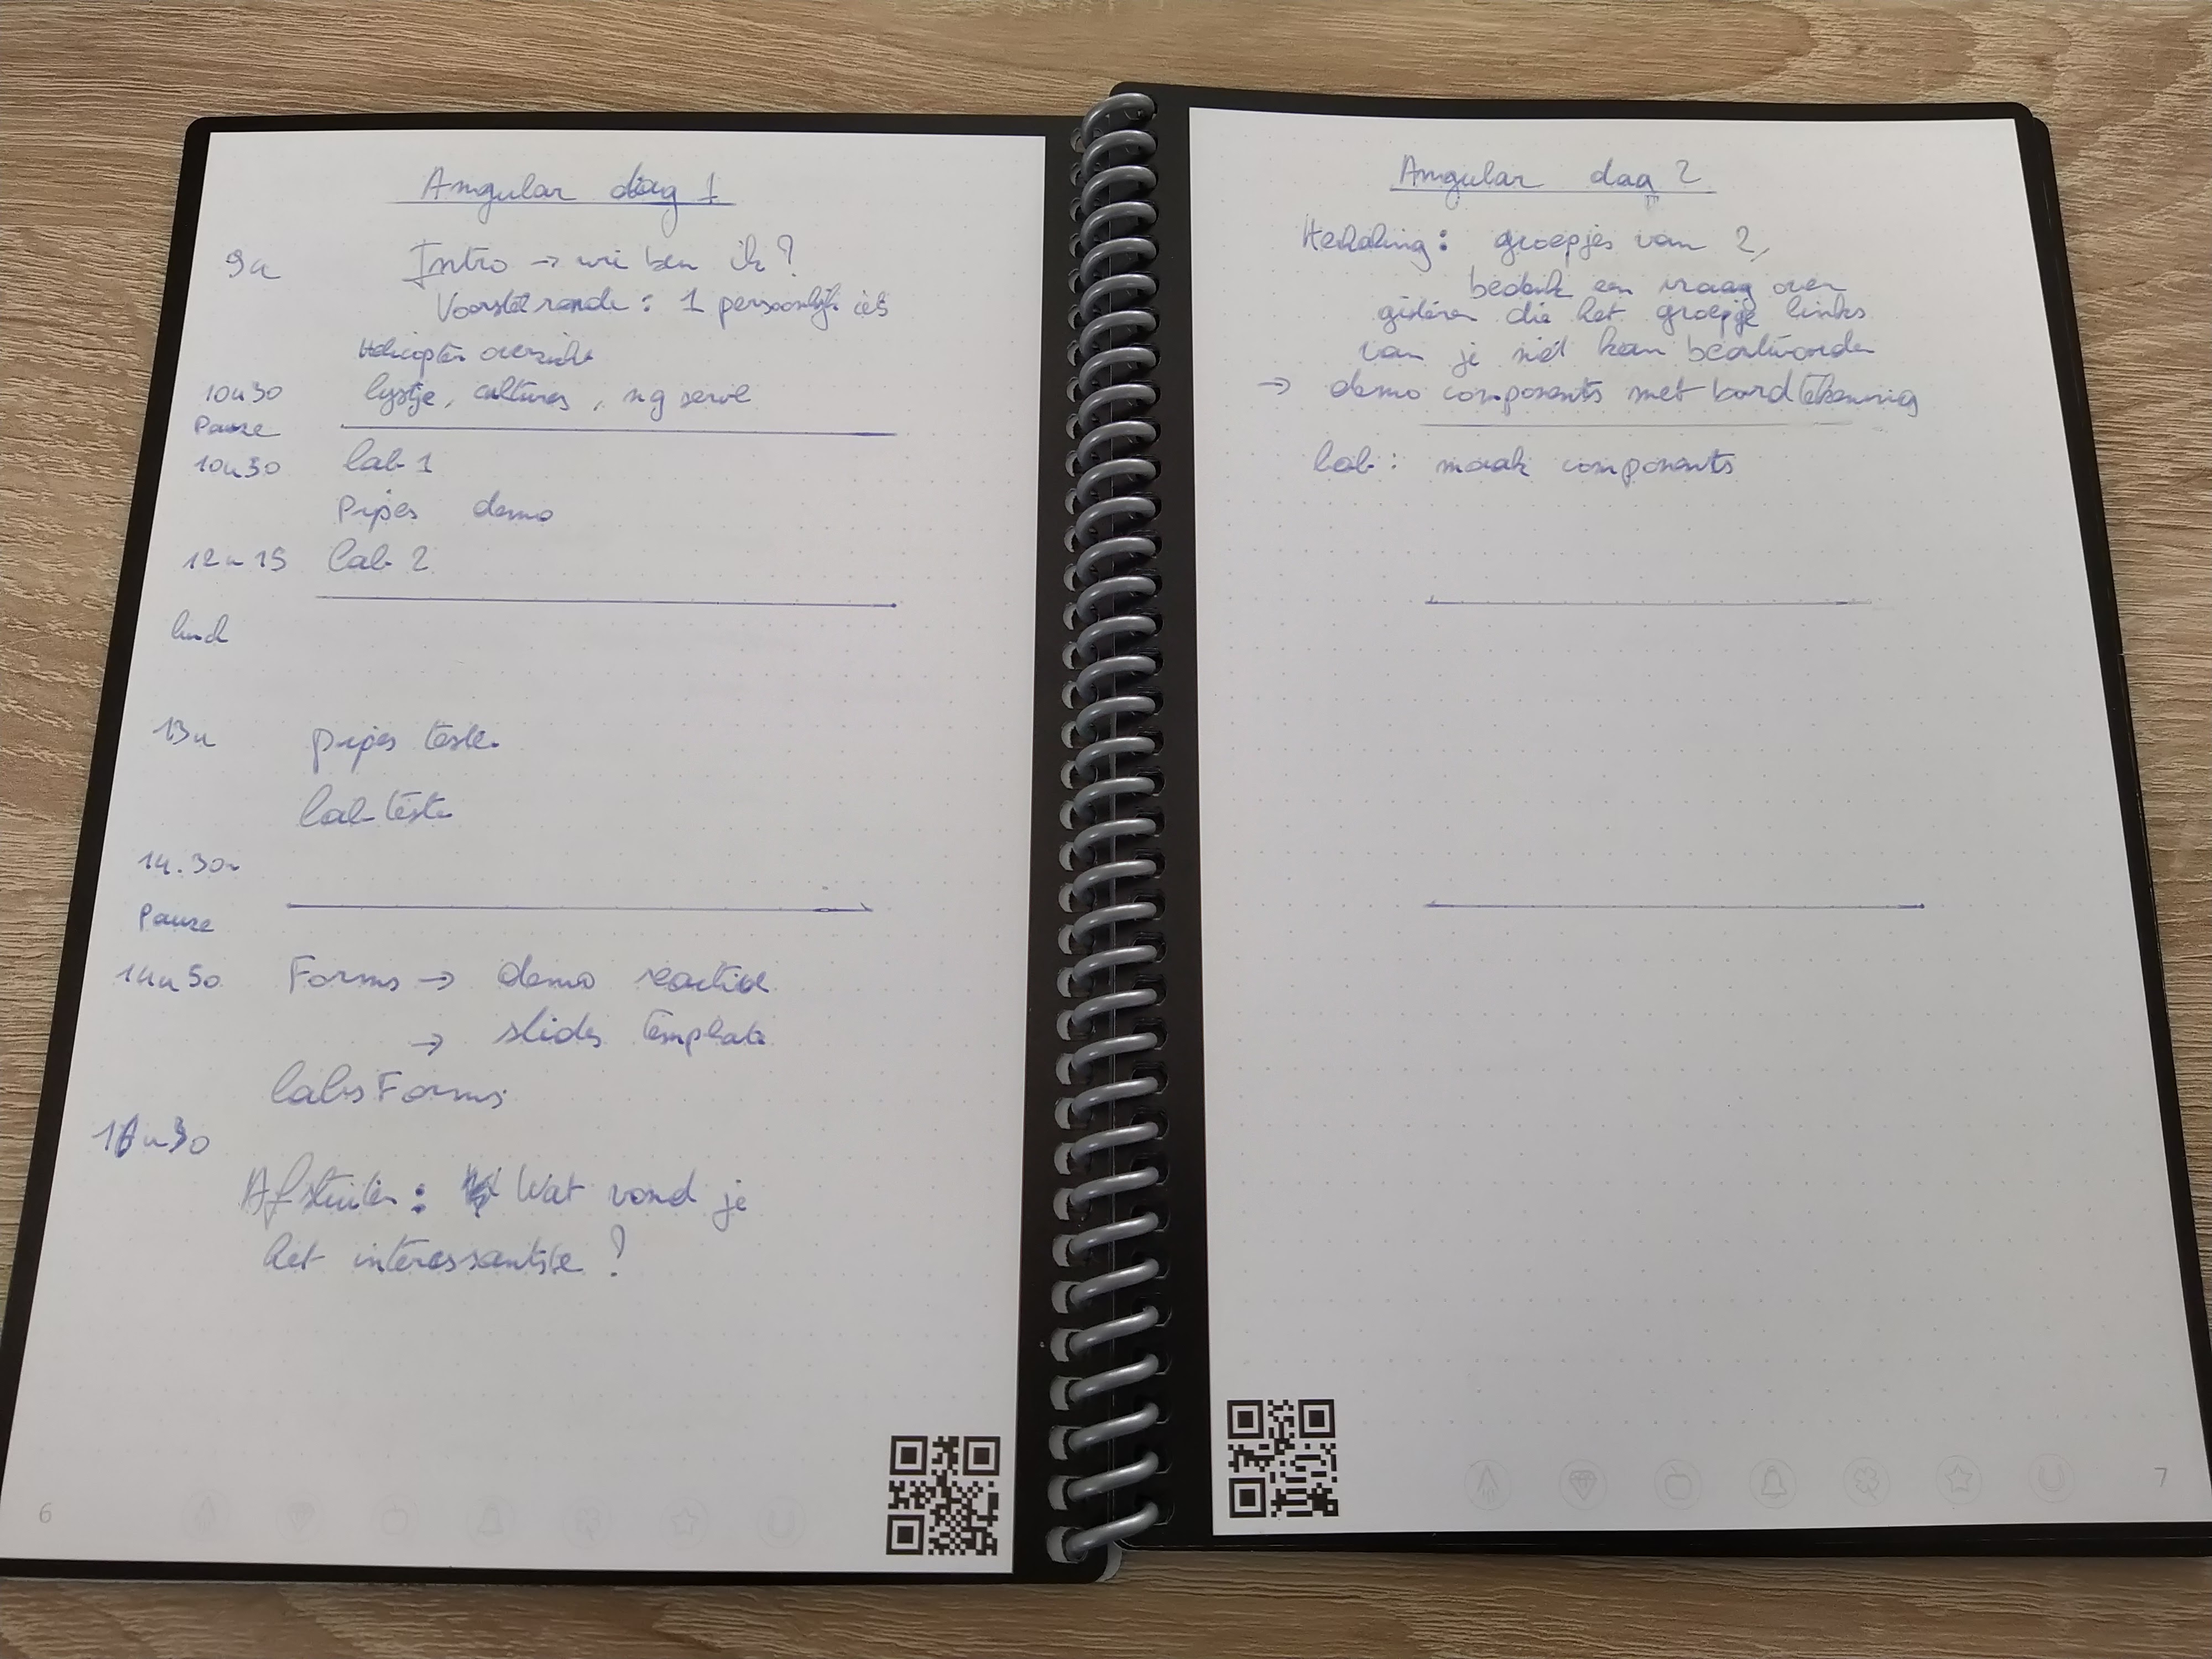 Angular dag 1
9u Intro → wie ben ik?
Voorstel ronde: 1 persoonlijk iets
Helicopter overzicht
10u30 lijstje, cultures, ng serve
Pauze
10u50 lab 1
Pipes demo
12u15 lab 2
lunch
13u pipes teste
lab teste
14.30u
Pauze
14u50 Forms → demo reactive
→ slides template
labs Forms
16u30
Afsluiten: Wat vond je
het interessantste?
6
Angular dag 2
Herhaling: groepjes van 2,
bedenk een vraag over
gisteren die het groepje links
van je niet kan beantwoorden
→ demo components met bordtekening
lab: maak components
7